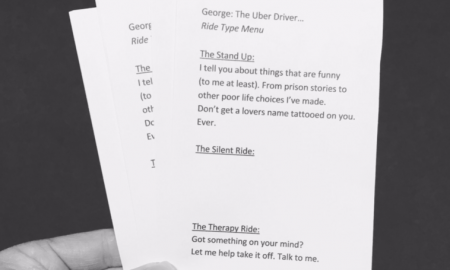 George: The Uber Driver…
Ride Type Menu
The Stand Up:
I tell you about things that are funny
(to me at least). From prison stories to
other poor life choices I've made.
Don't get a lovers name tattooed on you.
Ever.
The Silent Ride:
The Therapy Ride:
Got something on your mind?
Let me help take it off. Talk to me.